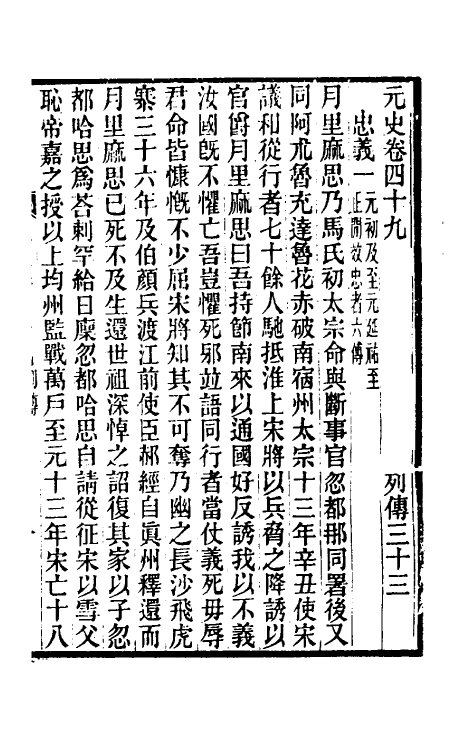 元史卷四十九　列傳三十三
忠義一元初及至元延祐至正間效忠者六傳
月里麻思乃馬氏初太宗命與斷事官忽都那同署後又
同阿朮魯充達魯花赤破南宿州太宗十三年辛丑使宋
議和從行者七十餘人馳抵淮上宋將以兵脅之降誘以
官爵月里麻思曰吾持節南來以通國好反誘我以不義
汝國旣不懼亡吾豈懼死邪竝語同行者當仗義死毋辱
君命皆慷慨不少屈宋將知其不可奪乃幽之長沙飛虎
寨三十六年及伯顏兵渡江前使臣郝經自眞州釋還而
月里麻思已死不及生還世祖深悼之詔復其家以子忽
都哈思爲荅剌罕給日廩忽都哈思自請從征宋以雪父
恥帝嘉之授以上均州監戰萬戶至元十三年宋亡十八